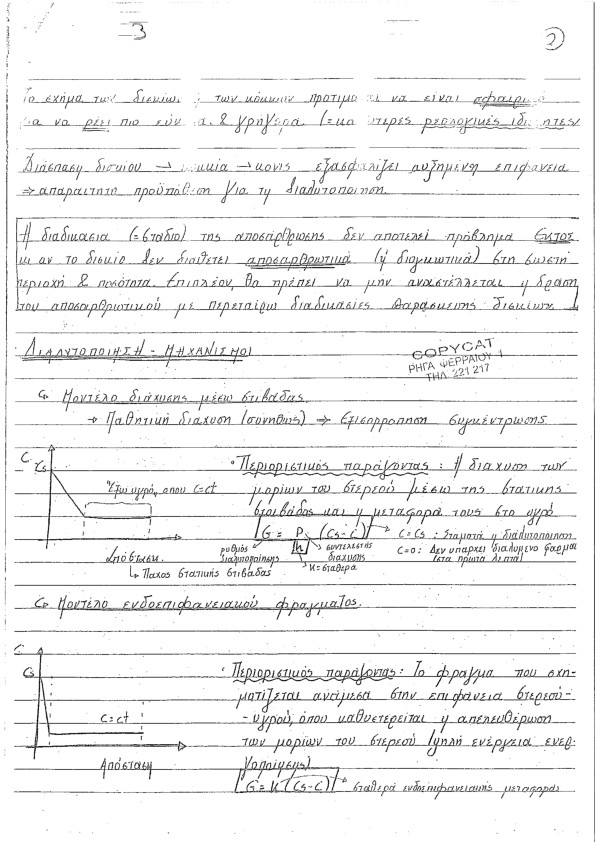 3
2
Το σχήμα των δισκίων των κόκκων προτιμα ται να είναι σφαιρικό
για να ρέει πιο εύκ α & γρήγορα. (=κα ύτερες ρεολογικές ιδιότητες)
Διάσπαση δισκίου → κοκκία → κόνις εξασφαλίζει αυξημένη επιφάνεια
⇒ απαραίτητη προϋπόθεση για τη διαλυτοποίηση.
Η διαδικασία (=στάδιο) της αποσάρθρωσης δεν αποτελεί πρόβλημα ΕΚΤΟΣ
κι αν το δισκίο δεν διαθέτει αποσαρθρωτικά (ή διογκωτικά) στη σωστή
περιοχή & ποσότητα. Επιπλέον, θα πρέπει να μην αναστέλλεται η δράση
του αποσαρθρωτικού με περεταίρω διαδικασίες παρασκευής δισκίων.
ΔΙΑΛΥΤΟΠΟΙΗΣΗ - ΜΗΧΑΝΙΣΜΟΙ
COPYCAT
ΡΗΓΑ ΦΕΡΡΑΙΟΥ 1
ΤΗΛ. 221 217
Μοντέλο διάχυσης μέσω στιβάδας.
→ Παθητική διάχυση (συνήθως) ⇒ Εξισορρόπηση συγκέντρωσης
C
Cs
Έξω υγρό, όπου C=ct
Απόσταση
• Περιοριστικός παράγοντας: Η διάχυση των
μορίων του στερεού μέσω της στατικής
στοιβάδας και η μεταφορά τους στο υγρό
G = D/h (Cs-C) → C=Cs: Σταματά η διαλυτοποίηση
C=0: Δεν υπάρχει διαλυμένο φάρμα
(στα πρώτα λεπτά)
ρυθμός διαλυτοποίησης
συντελεστής διάχυσης
κ=σταθερά
↳ Πάχος στατικής στιβάδας
Μοντέλο ενδοεπιφανειακού φράγματος.
C
Cs
C=ct
Απόσταση
• Περιοριστικός παράγοντας: Το φράγμα που σχη-
ματίζεται ανάμεσα στην επιφάνεια στερεού-
-υγρού, όπου καθυστερείται η απελευθέρωση
των μορίων του στερεού (υψηλή ενέργεια ενερ-
γοποίησης)
G = K (Cs-C) → σταθερά ενδοεπιφανειακής μεταφοράς